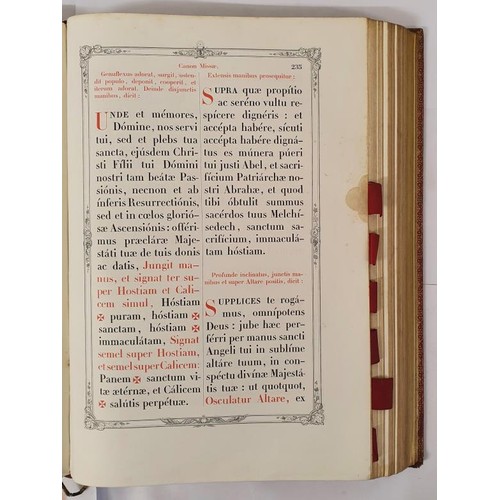 Canon Missæ. 235
Genuflexus adorat, surgit, osten-
dit populo, deponit, cooperit, et
iterum adorat. Deinde disjunctis
manibus, dicit:
UNDE et mémores,
Dómine, nos servi
tui, sed et plebs tua
sancta, ejúsdem Chri-
sti Fílii tui Dómini
nostri tam beátæ Pas-
siónis, necnon et ab
ínferis Resurrectiónis,
sed et in cœlos glorió-
sæ Ascensiónis: offéri-
mus præcláræ Maje-
státi tuæ de tuis donis
ac datis, Jungit ma-
nus, et signat ter su-
per Hostiam et Cali-
cem simul, Hóstiam
✠ puram, hóstiam ✠
sanctam, hóstiam ✠
immaculátam, Signat
semel super Hostiam,
et semel super Calicem:
Panem ✠ sanctum vi-
tæ ætérnæ, et Cálicem
✠ salútis perpétuæ.
Extensis manibus prosequitur:
SUPRA quæ propítio
ac seréno vultu re-
spícere dignéris: et
accépta habére, sícuti
accépta habére digná-
tus es múnera púeri
tui justi Abel, et sacri-
fícium Patriárchæ no-
stri Abrahæ, et quod
tibi óbtulit summus
sacérdos tuus Melchí-
sedech, sanctum sa-
crifícium, immaculá-
tam hóstiam.
Profunde inclinatus, junctis ma-
nibus et super Altare positis, dicit:
SUPPLICES te rogá-
mus, omnípotens
Deus: jube hæc per-
férri per manus sancti
Angeli tui in sublíme
altáre tuum, in con-
spéctu divínæ Majestá-
tis tuæ: ut quotquot,
Osculatur Altare, ex